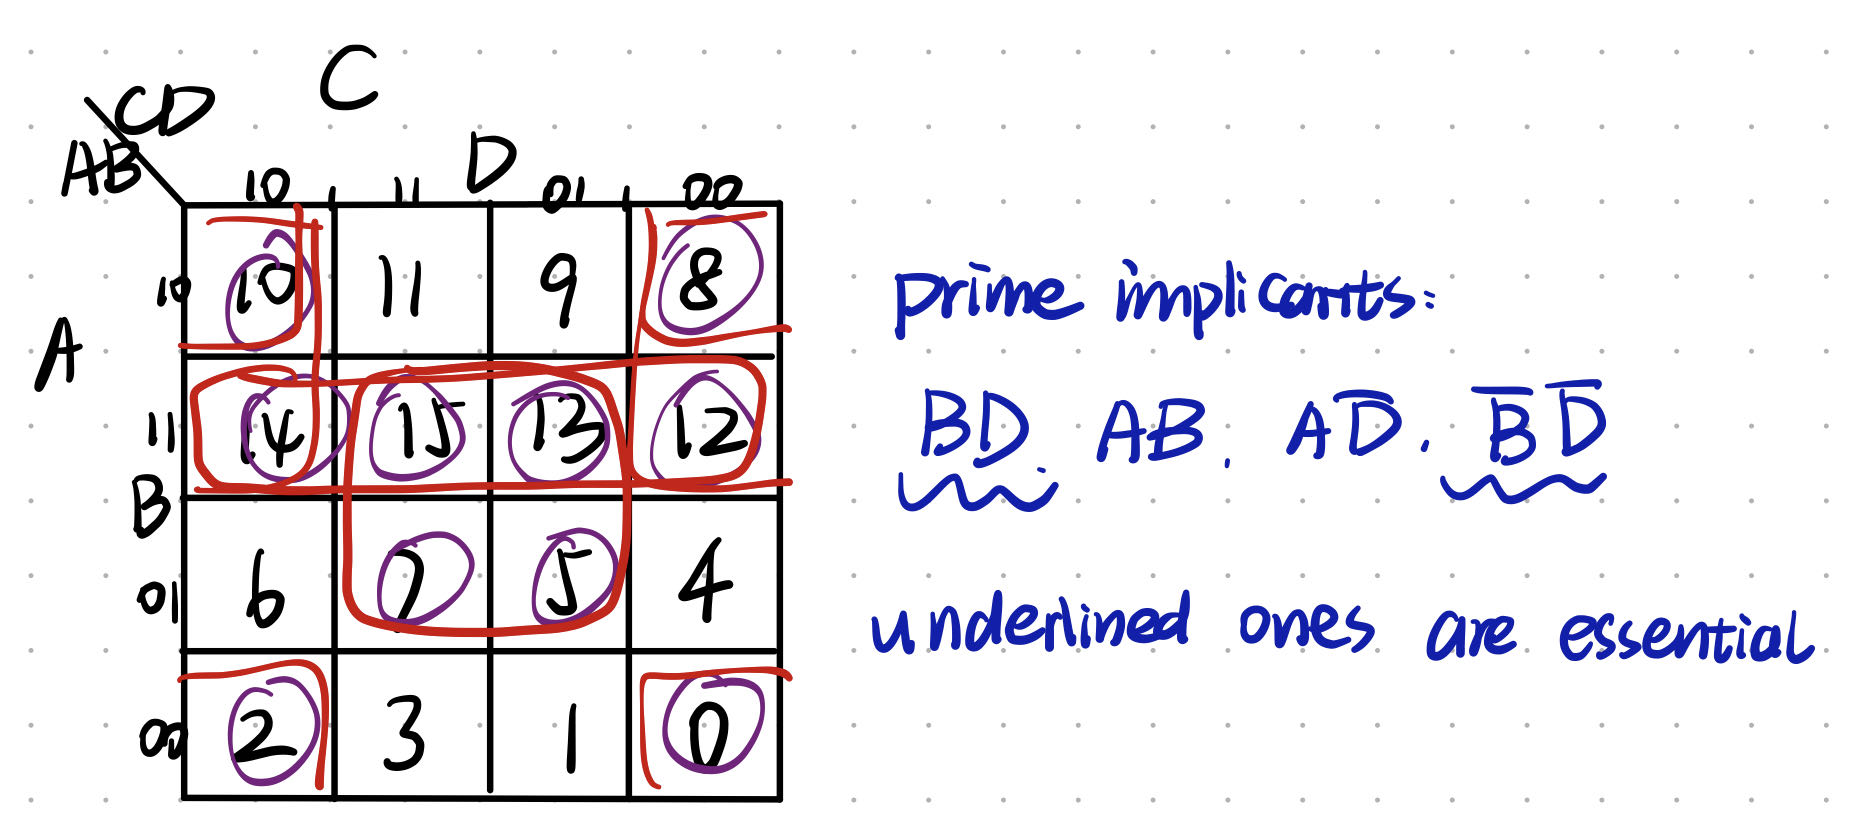 C
CD
AB
D
10 11 01 00
10 10 11 9 8
A
11 14 15 13 12
B
01 6 7 5 4
00 2 3 1 0
prime implicants:
BD. AB. AD̅. B̅ D̅
underlined ones are essential